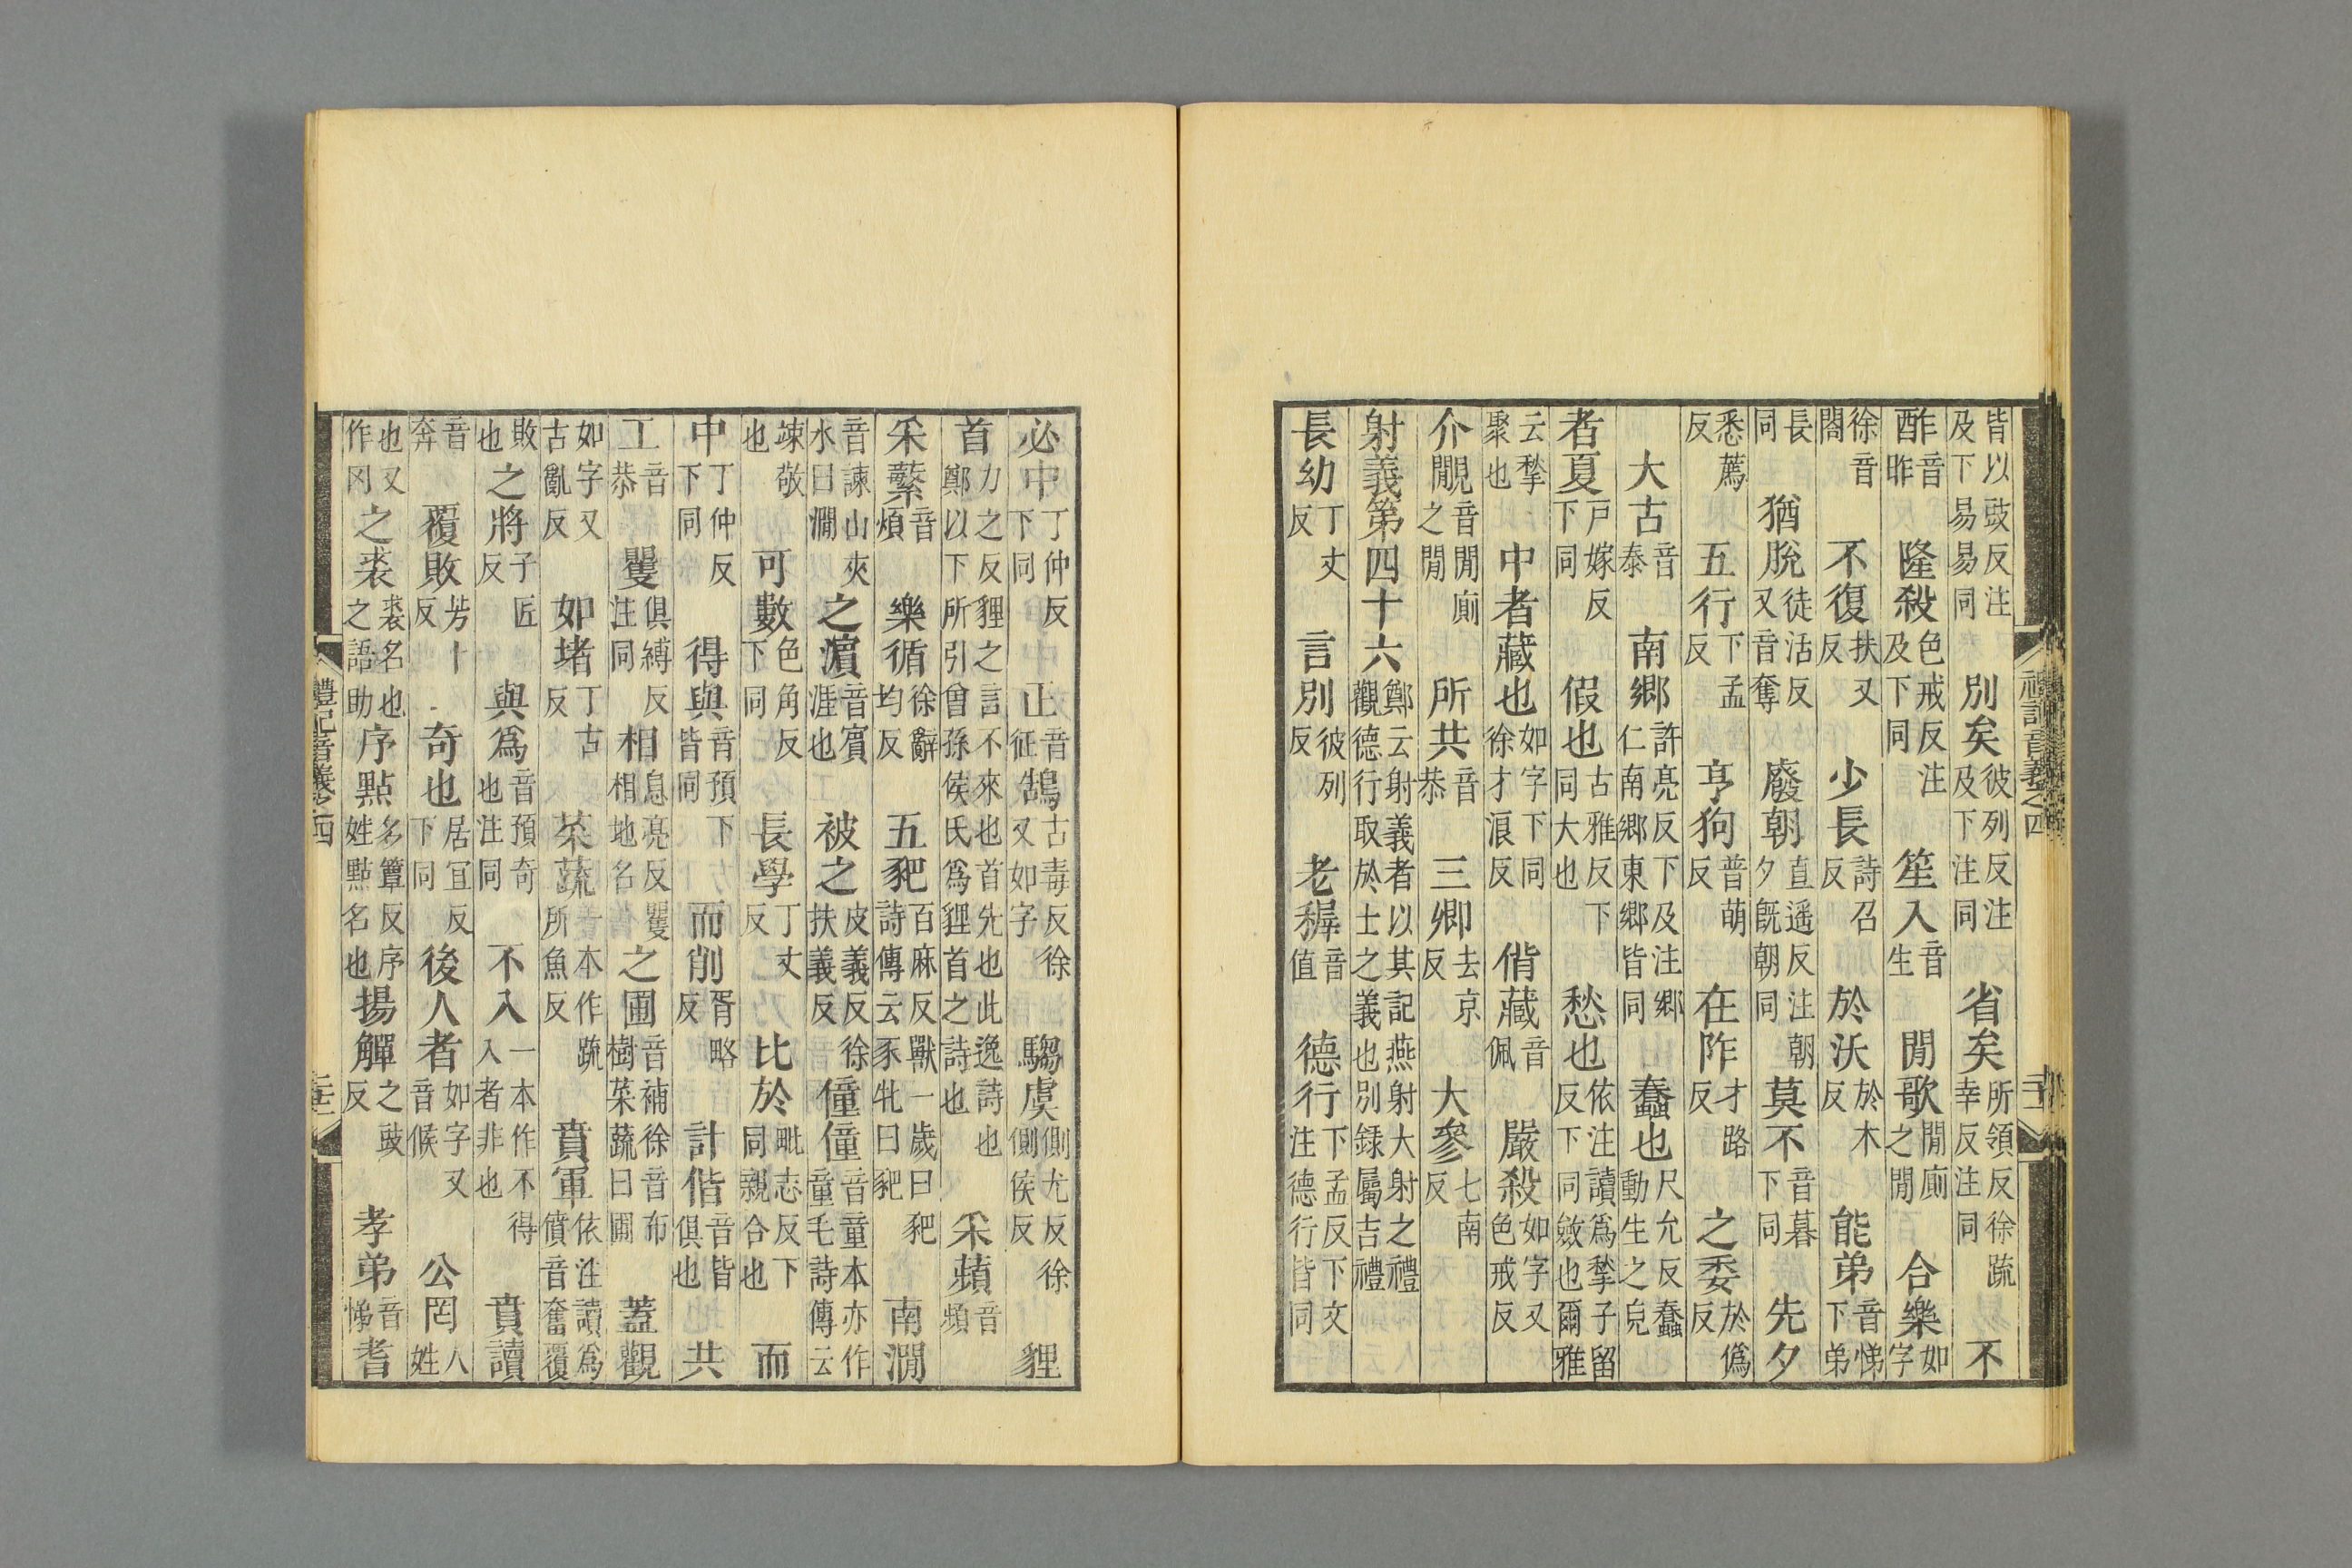 皆以豉反注及下易易同 別矣彼列反注及下注同 省矣所領反徐疏幸反注同 不
酢音昨酢 隆殺色戒反注及下同 笙入音生 閒歌閒廁之閒 合樂如字
徐音閤 不復扶又反 少長詩召反 於沃於木反 能弟音悌下弟
長同 猶脫徒活反又音奪 廢朝直遥反注朝夕旣朝同 莫不音暮下同 先夕
悉薦反 五行下孟反 亨狗普萌反 在阼才路反 之委於僞反
大古音泰 南鄉許亮反下及注鄉仁南鄉東鄉皆同 蠢也尺允反蠢動生之皃
者夏戶嫁反下同 假也古雅反下同大也 愁也依注讀爲揫子留反下同斂也爾雅
云揫聚也 中者藏也如字下同徐才浪反 偝藏音佩 嚴殺如字又色戒反
介閒音閒廁之閒 所共音恭 三卿去京反 大參七南反
射義第四十六鄭云射義者以其記燕射大射之禮觀德行取於士之義也別録屬吉禮
長幼丁丈反 言別彼列反 老稺音值 德行下孟反下文注德行皆同
必中丁仲反下同 正音征 鵠古毒反徐又如字 騶虞側尤反徐側侯反 貍
首力之反貍之言不來也首先也此逸詩也鄭以下所引曾孫侯氏爲貍首之詩也 采蘋音頻
采蘩音煩 樂循徐辭均反 五豝百麻反獸一歲曰豝詩傳云豕牝曰豝 南澗
音諫山夾水曰澗 之濵音賓涯也 被之皮義反徐扶義反 僮僮音童本亦作童毛詩傳云
竦敬也 可數色角反下同 長學丁丈反 比於毗志反下同親合也 而
中丁仲反下同 得與音預下皆同 而削胥略反 計偕音皆俱也 共
工音恭 矍俱縛反注同 相息亮反矍相地名 之圃音補徐音布樹菜蔬曰圃 蓋觀
如字又古亂反 如堵丁古反 菜蔬本作疏所魚反 賁軍依注讀爲僨音奮覆
敗也 之將子匠反 與爲音預奇也注同 不入一本作不得入者非也 賁讀
音奔 覆敗芳卜反 奇也居宜反下同 後人者如字又音候 公罔人姓
也又作冈 之裘裘名也之語助 序點多簟反序姓點名也 揚觶之豉反 孝弟音悌 耆
禮記音義之四